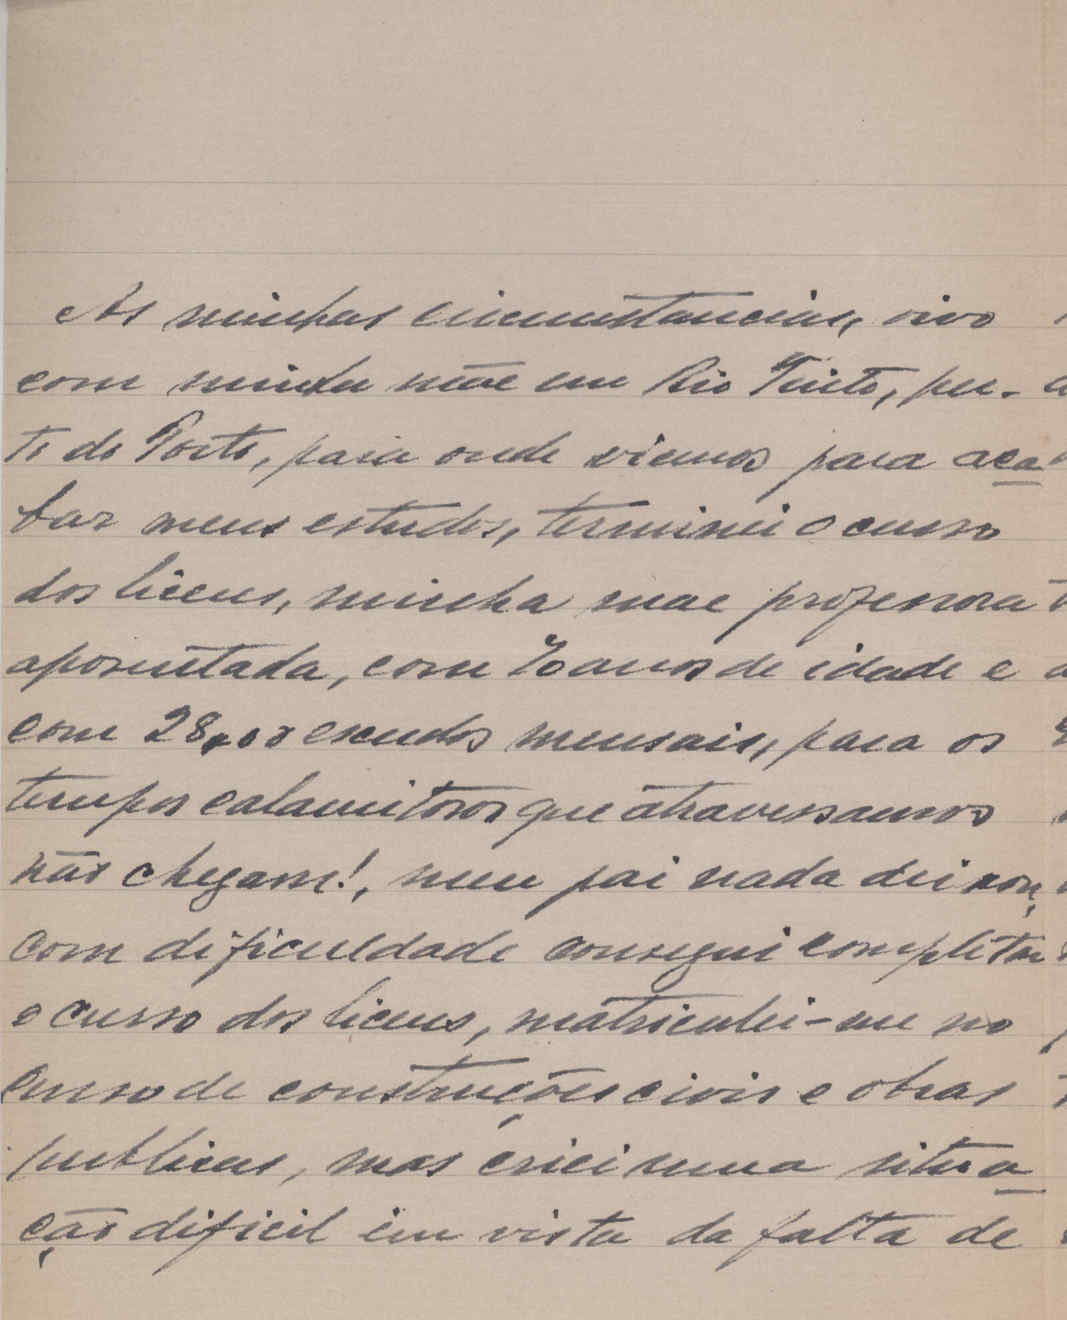 As minhas circumstancias, vivo
com minha mãe em Rio Tinto, per-
to do Porto, para onde viemos para aca
bar meus estudos, terminei o curso
dos liceus, minha mãe professora
aposentada, com 70 anos de idade e
com 28,00 escudos mensais, para os
tempos calamitosos que atravessamos
não chegam!, meu pai nada deixou,
com dificuldade consegui completar
o curso dos liceus, matriculei-me no
curso de construções civis e obras
publicas, mas criei uma situa
ção dificil em vista da falta de